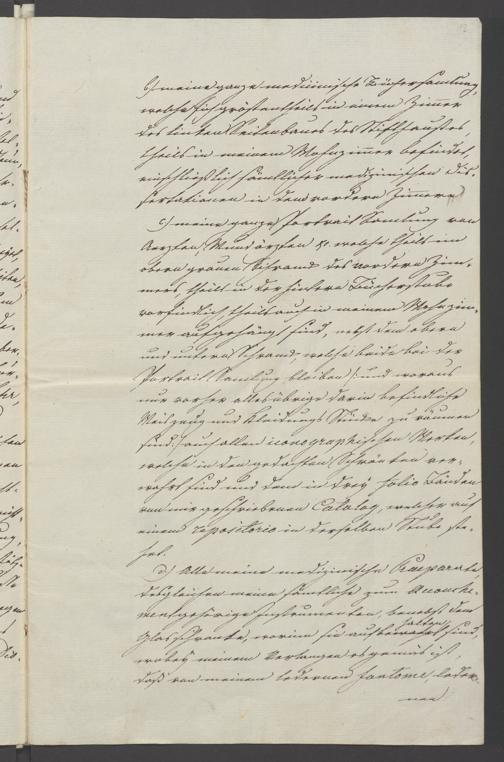 b.) meine ganze medicinische Büchersammlung,
welche sich größtentheils in einem Zimer
des linken Seitenbaues des Stifthauses,
theils in meinem Wohnzimer befindet,
einschließlich sämtlicher medizinischen Dis-
sertationen in dem vordern Zimmer
c.) meine ganze Portrait Samlung von
Aerzten, Wundärzten pp. welche theils im
obern grauen Schrank des vordern Zim-
mers, theils in der hintern Bücherstube
vorfindlich, theils auch in meinem Wohnzim-
mer aufgehängt sind, nebst dem obern
und untern Schrank, welche beide bei der
Portrait Samlung bleiben /: und woraus
nur vorher alles übrige darin befindliche
Weißzeug und Kleidungs Stücke zu räumen
sind :/ auch allen iconographischen Werken,
welche in den gedachten Schränken ver-
wahrt sind und dem in drey folio Bänden
von mir geschriebenen Catalog, welcher auf
einem repositorio in derselben Stube ste-
het.
d.) Alle meine medizinische Praeparate,
desgleichen meine sämtliche zum Accouche-
ment gehörige Instrumenten, benebst dem
Glasschranke, worin sie aufbewahret sind,
wobey meinem Verlangen es gemäß ist,
daß von meinem ledernen fantome, leder-
nen